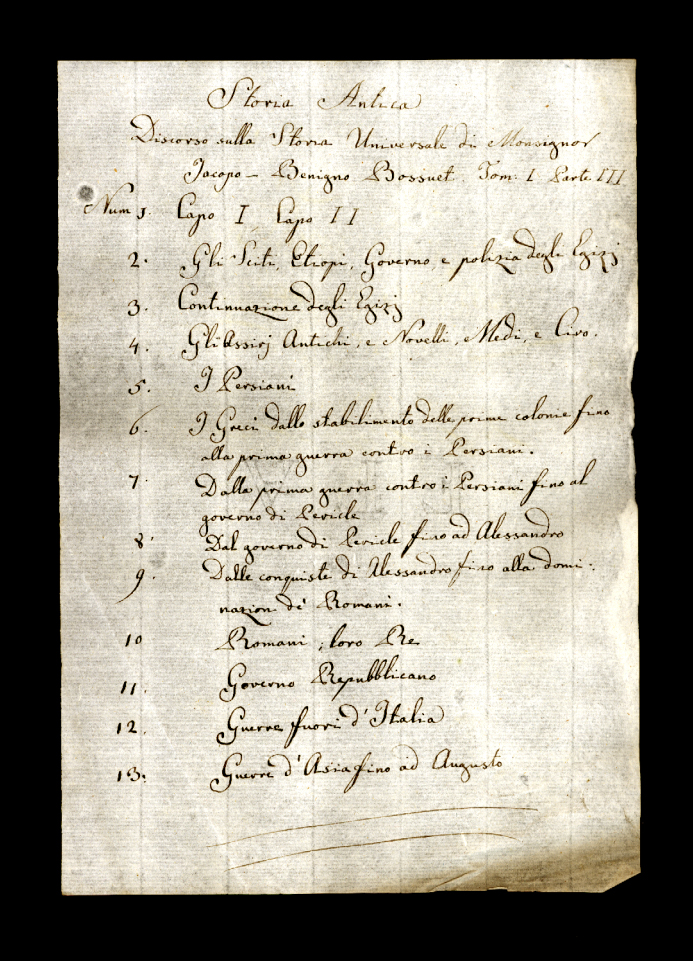 Storia Antica
Discorso sulla Storia Universale di Monsignor
Jacopo - Benigno Bossuet. Tom: I Parte III
Num 1. Capo I, Capo II
2. Gli Sciti, Etiopi, Governo, e polizia degli Egizj
3. Continuazione degli Egizj
4. Gli Assirj Antichi, e Novelli, Medi, e Ciro.
5. I Persiani
6. I Greci dallo stabilimento delle prime colonie fino
alla prima guerra contro i Persiani.
7. Dalla prima guerra contro i Persiani fino al
governo di Pericle
8. Dal governo di Pericle fino ad Alessandro
9. Dalle conquiste di Alessandro fino alla domi:
nazion de' Romani.
10 Romani, loro Re
11. Governo Repubblicano
12. Guerre fuori d'Italia
13. Guerre d'Asia fino ad Augusto